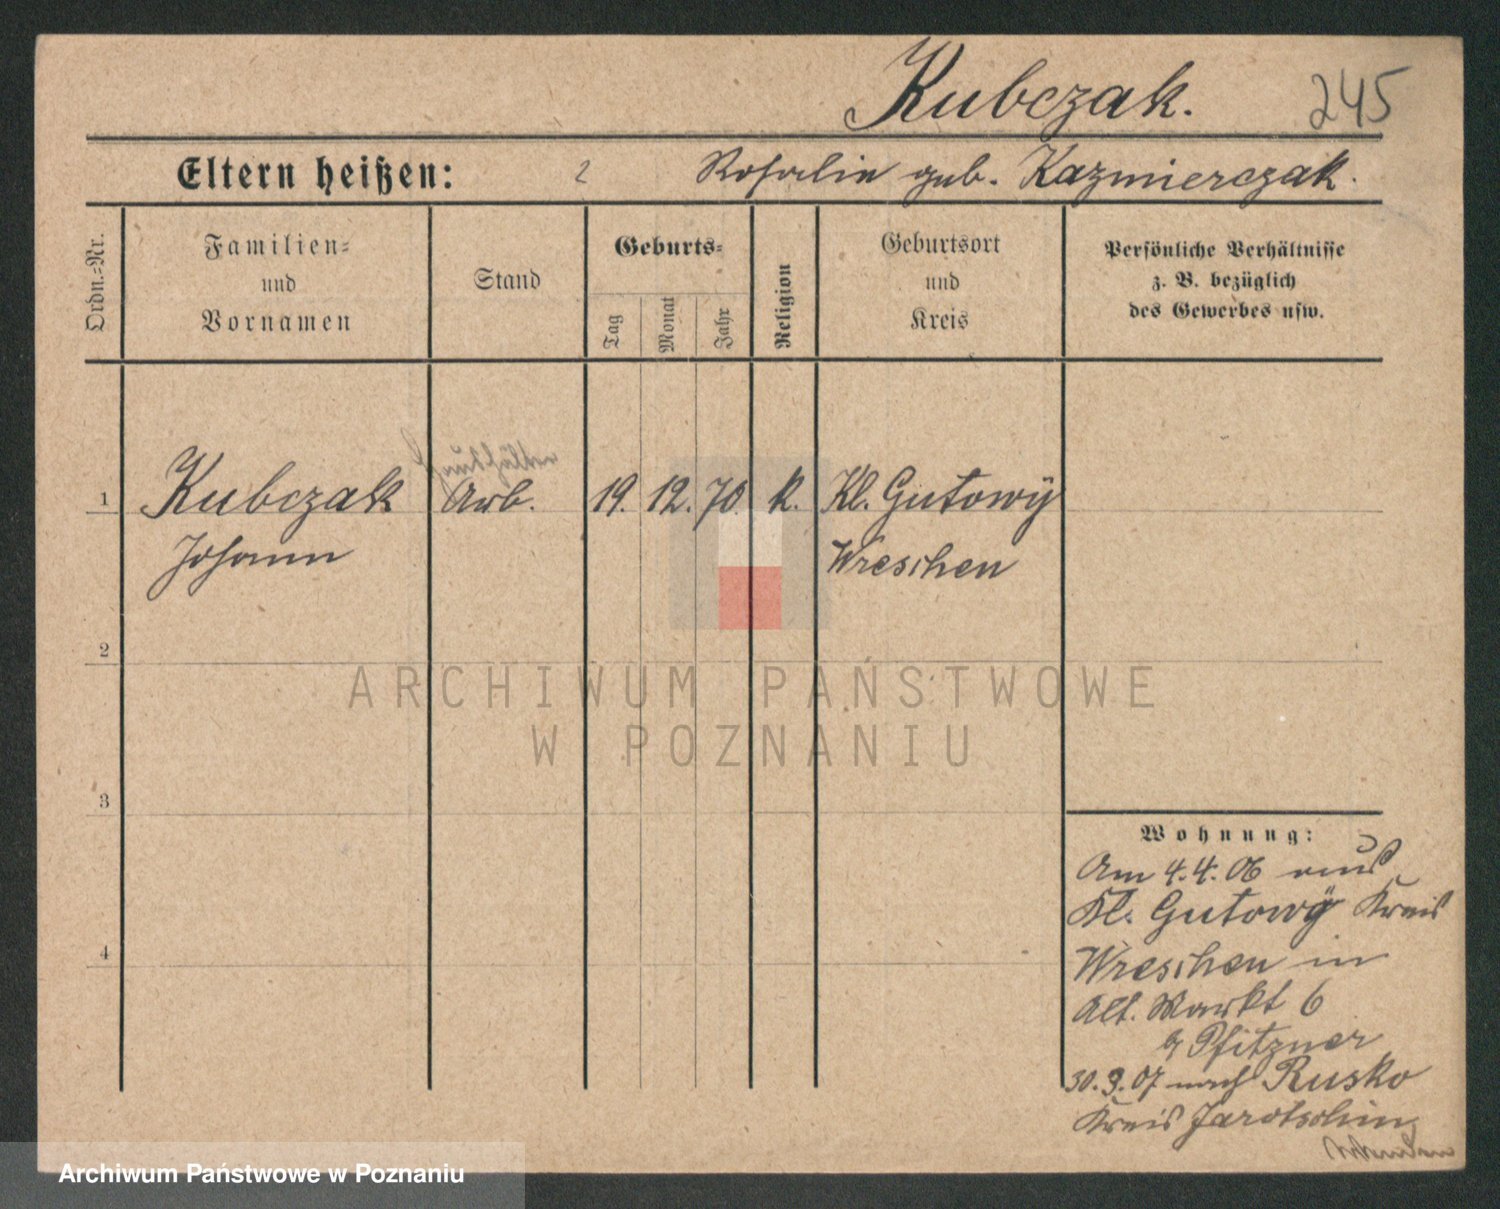 Kubczak. 245
Eltern heißen: Rosalie geb. Kazmierczak.
Ordn.=Nr.
Familien=
und
Vornamen
Stand
Geburts=
Tag
Monat
Jahr
Religion
Geburtsort
und
Kreis
Persönliche Verhältnisse
z. B. bezüglich
des Gewerbes usw.
1 Kubczak Arb. 19. 12. 70. k. Kl. Gutowÿ
Johann Wreschen
2
3
4
Wohnung:
Am 4.4.06 aus
Kl. Gutowÿ Kreis
Wreschen in
Alt. Markt 6
Pfitzner
30.9.07 nach Rusko
Kreis Jarotschin
ARCHIWUM PAŃSTWOWE
W POZNANIU
Archiwum Państwowe w Poznaniu